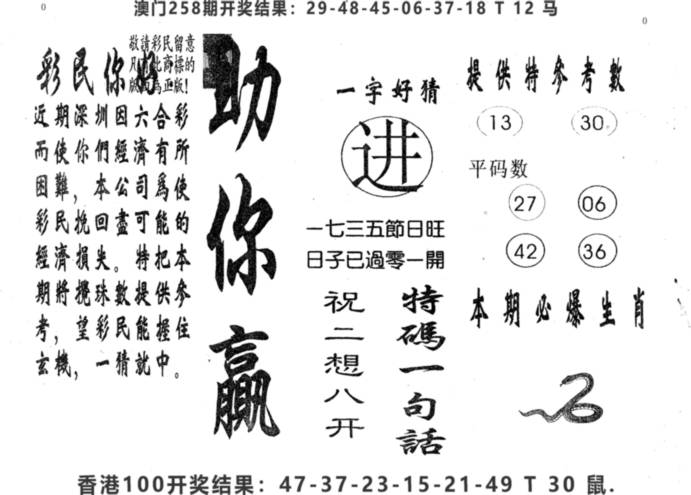 澳门258期开奖结果：29-48-45-06-37-18 T 12 马
敬請彩民留意
版!
彩民你好
近期深圳因六合彩
而使你們經濟有所
困難，本公司爲使
彩民挽回盡可能的
經濟損失。特把本
期將攪珠數提供參
考，望彩民能握住
玄機，一猜就中。
助你贏
一字好猜
进
一七三五節日旺
日子已過零一開
特碼一句話
祝二想八开
提供特參考數
13 30
平码数
27 06
42 36
本期必爆生肖
香港100开奖结果：47-37-23-15-21-49 T 30 鼠.